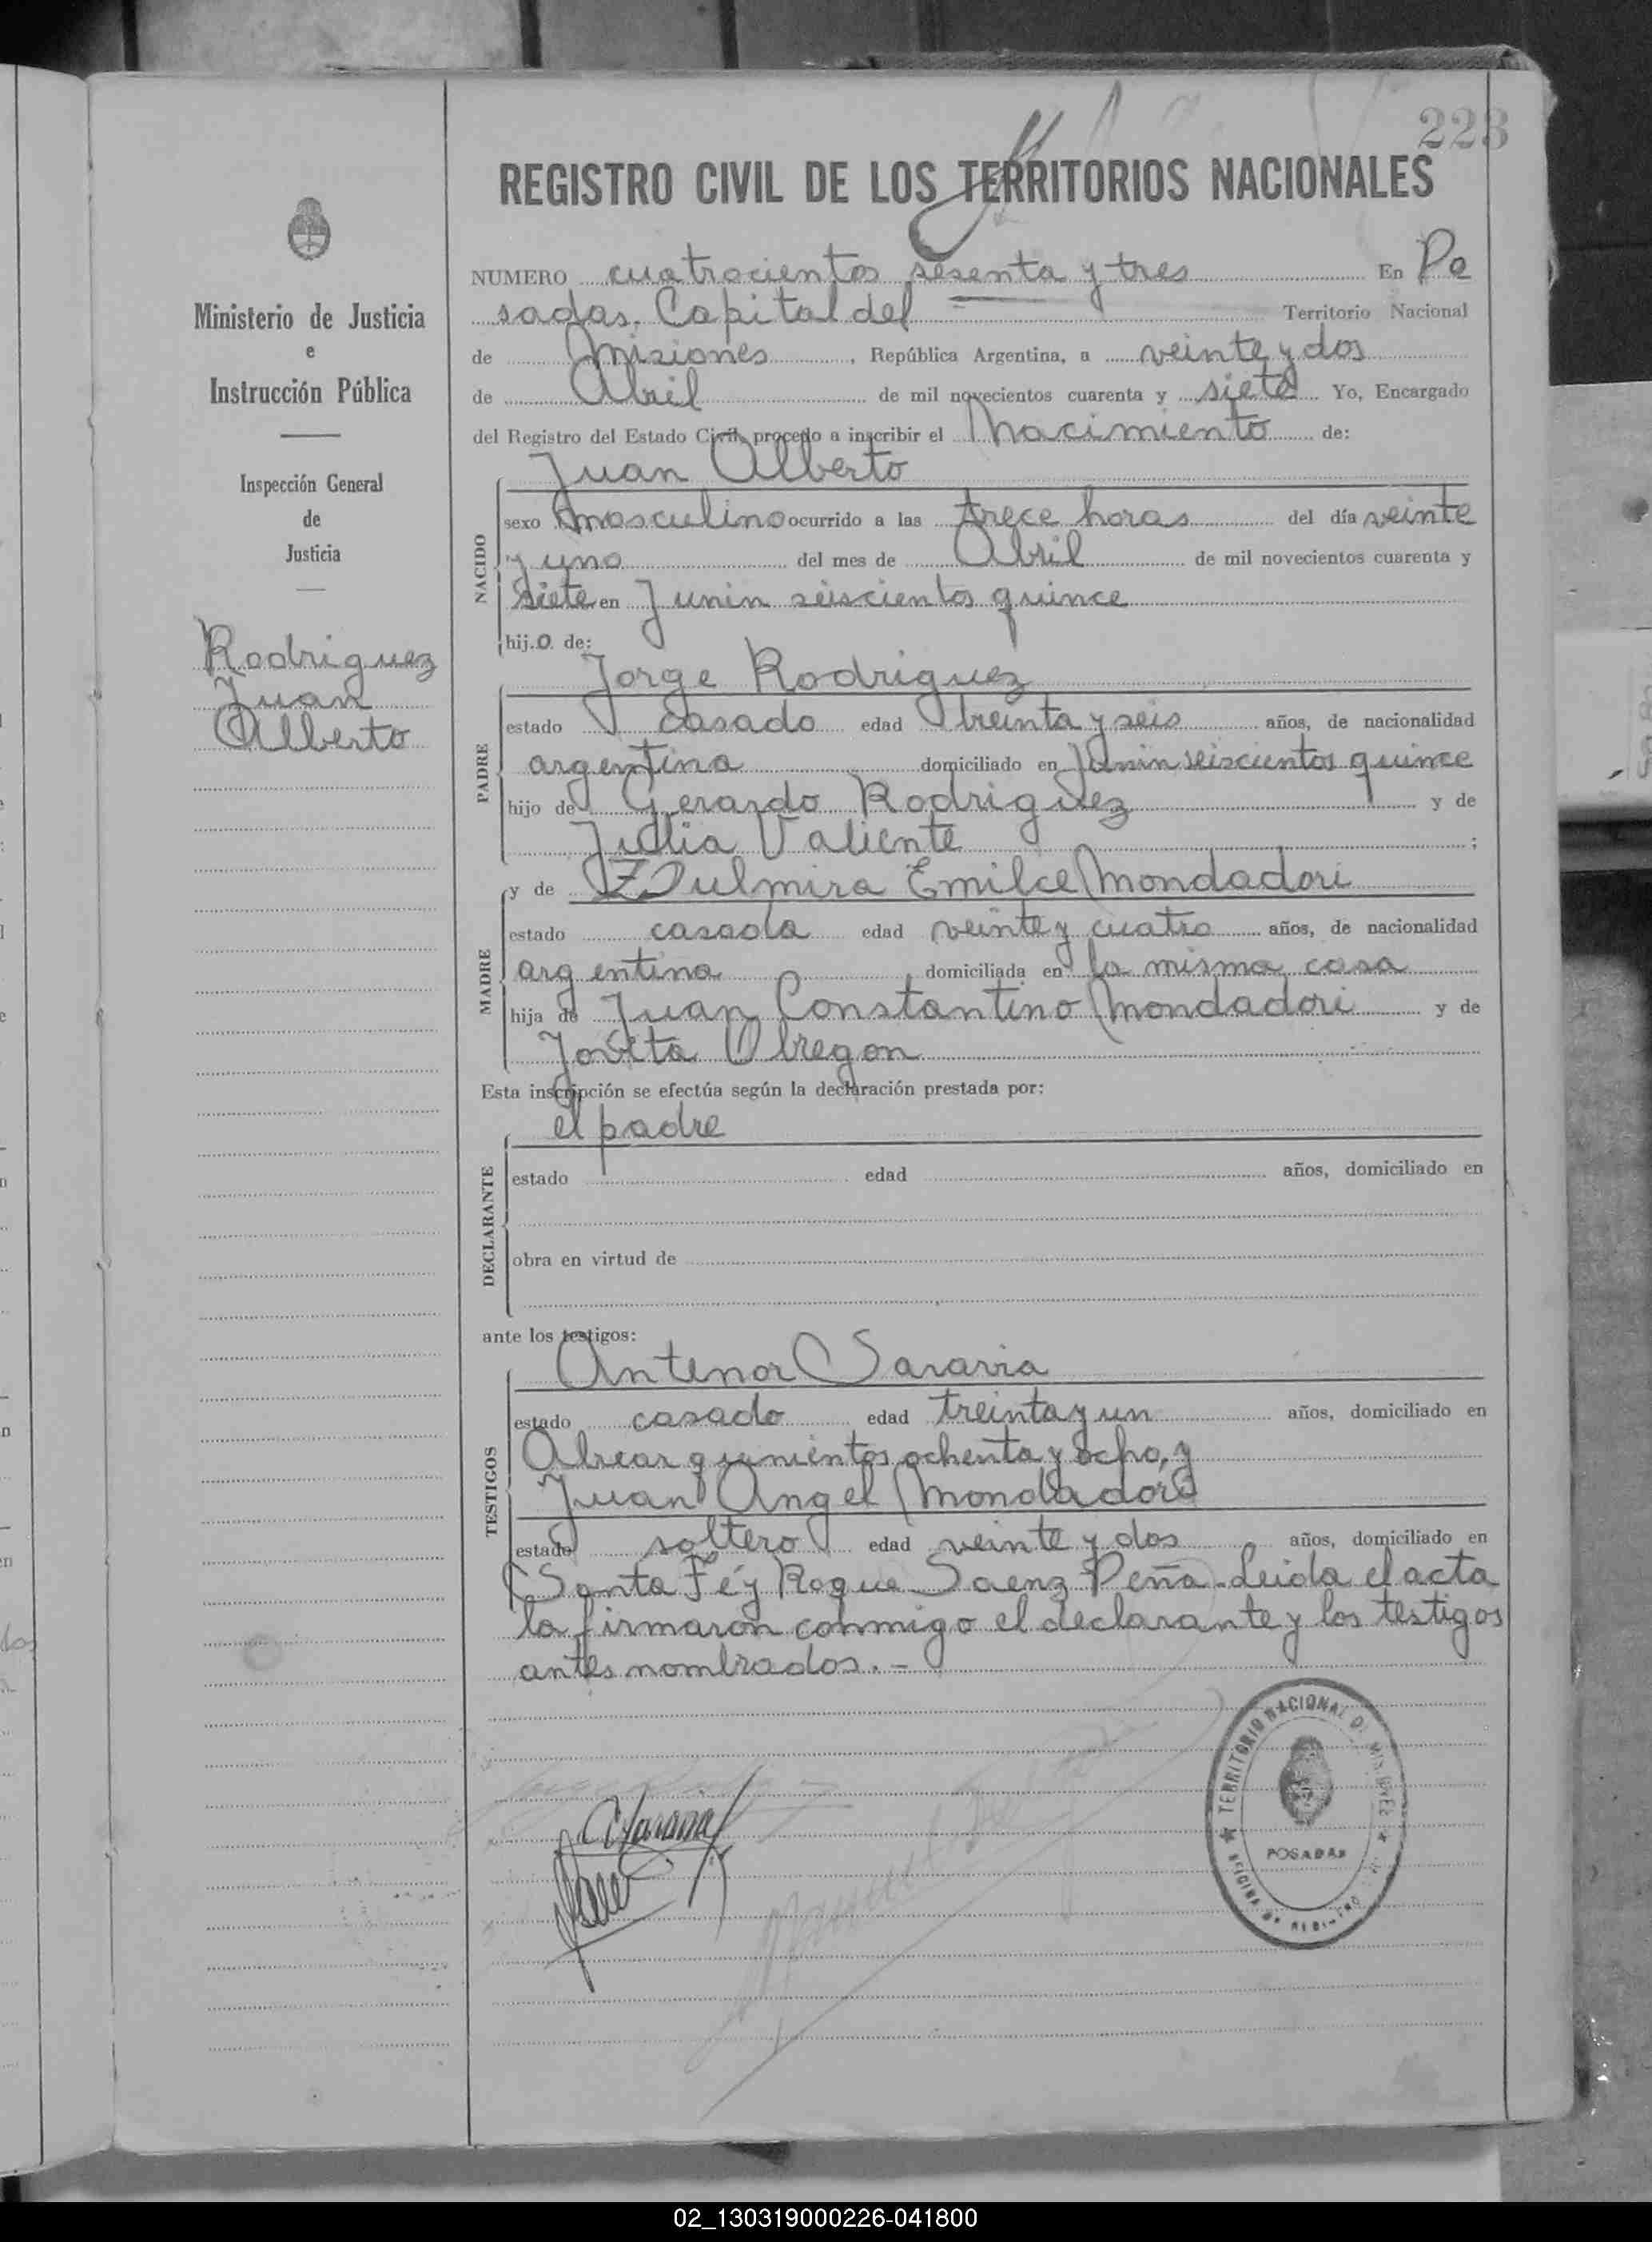 223
REGISTRO CIVIL DE LOS TERRITORIOS NACIONALES
Ministerio de Justicia
e
Instrucción Pública
Inspección General
de
Justicia
Rodriguez
Juan
Alberto
NUMERO cuatrocientos sesenta y tres En Po
sadas. Capital del Territorio Nacional
de Misiones, República Argentina, a veinte y dos
de Abril de mil novecientos cuarenta y siete Yo, Encargado
del Registro del Estado Civil, procedo a inscribir el Nacimiento de:
Juan Alberto
NACIDO
sexo masculino ocurrido a las trece horas del día veinte
y uno del mes de Abril de mil novecientos cuarenta y
siete en Junin seiscientos quince
hij.o. de:
Jorge Rodriguez
PADRE
estado casado edad treinta y seis años, de nacionalidad
argentina domiciliado en Junin seiscientos quince
hijo de Gerardo Rodriguez y de
Julia Valiente ;
MADRE
y de Dulmira Emilce Mondadori
estado casada edad veinte y cuatro años, de nacionalidad
argentina domiciliada en la misma casa
hija de Juan Constantino Mondadori y de
Jovita Obregon
Esta inscripción se efectúa según la declaración prestada por:
el padre
DECLARANTE
estado edad años, domiciliado en
obra en virtud de
ante los testigos:
Antenor Saravia
TESTIGOS
estado casado edad treinta y un años, domiciliado en
Alvear quinientos ochenta y ocho, y
Juan Angel Mondadori
estado soltero edad veinte y dos años, domiciliado en
Santa Fé y Roque Saenz Peña - Leida el acta
la firmaron conmigo el declarante y los testigos
antes nombrados. -
TERRITORIO NACIONAL DE MISIONES
POSADAS
02_130319000226-041800